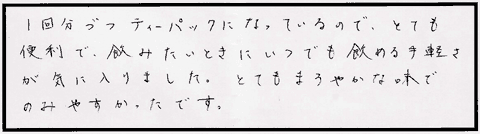 1回分づつティーパックになっているので、とても
便利で、飲みたいときにいつでも飲める手軽さ
が気に入りました。とてもまろやかな味で
のみやすかったです。